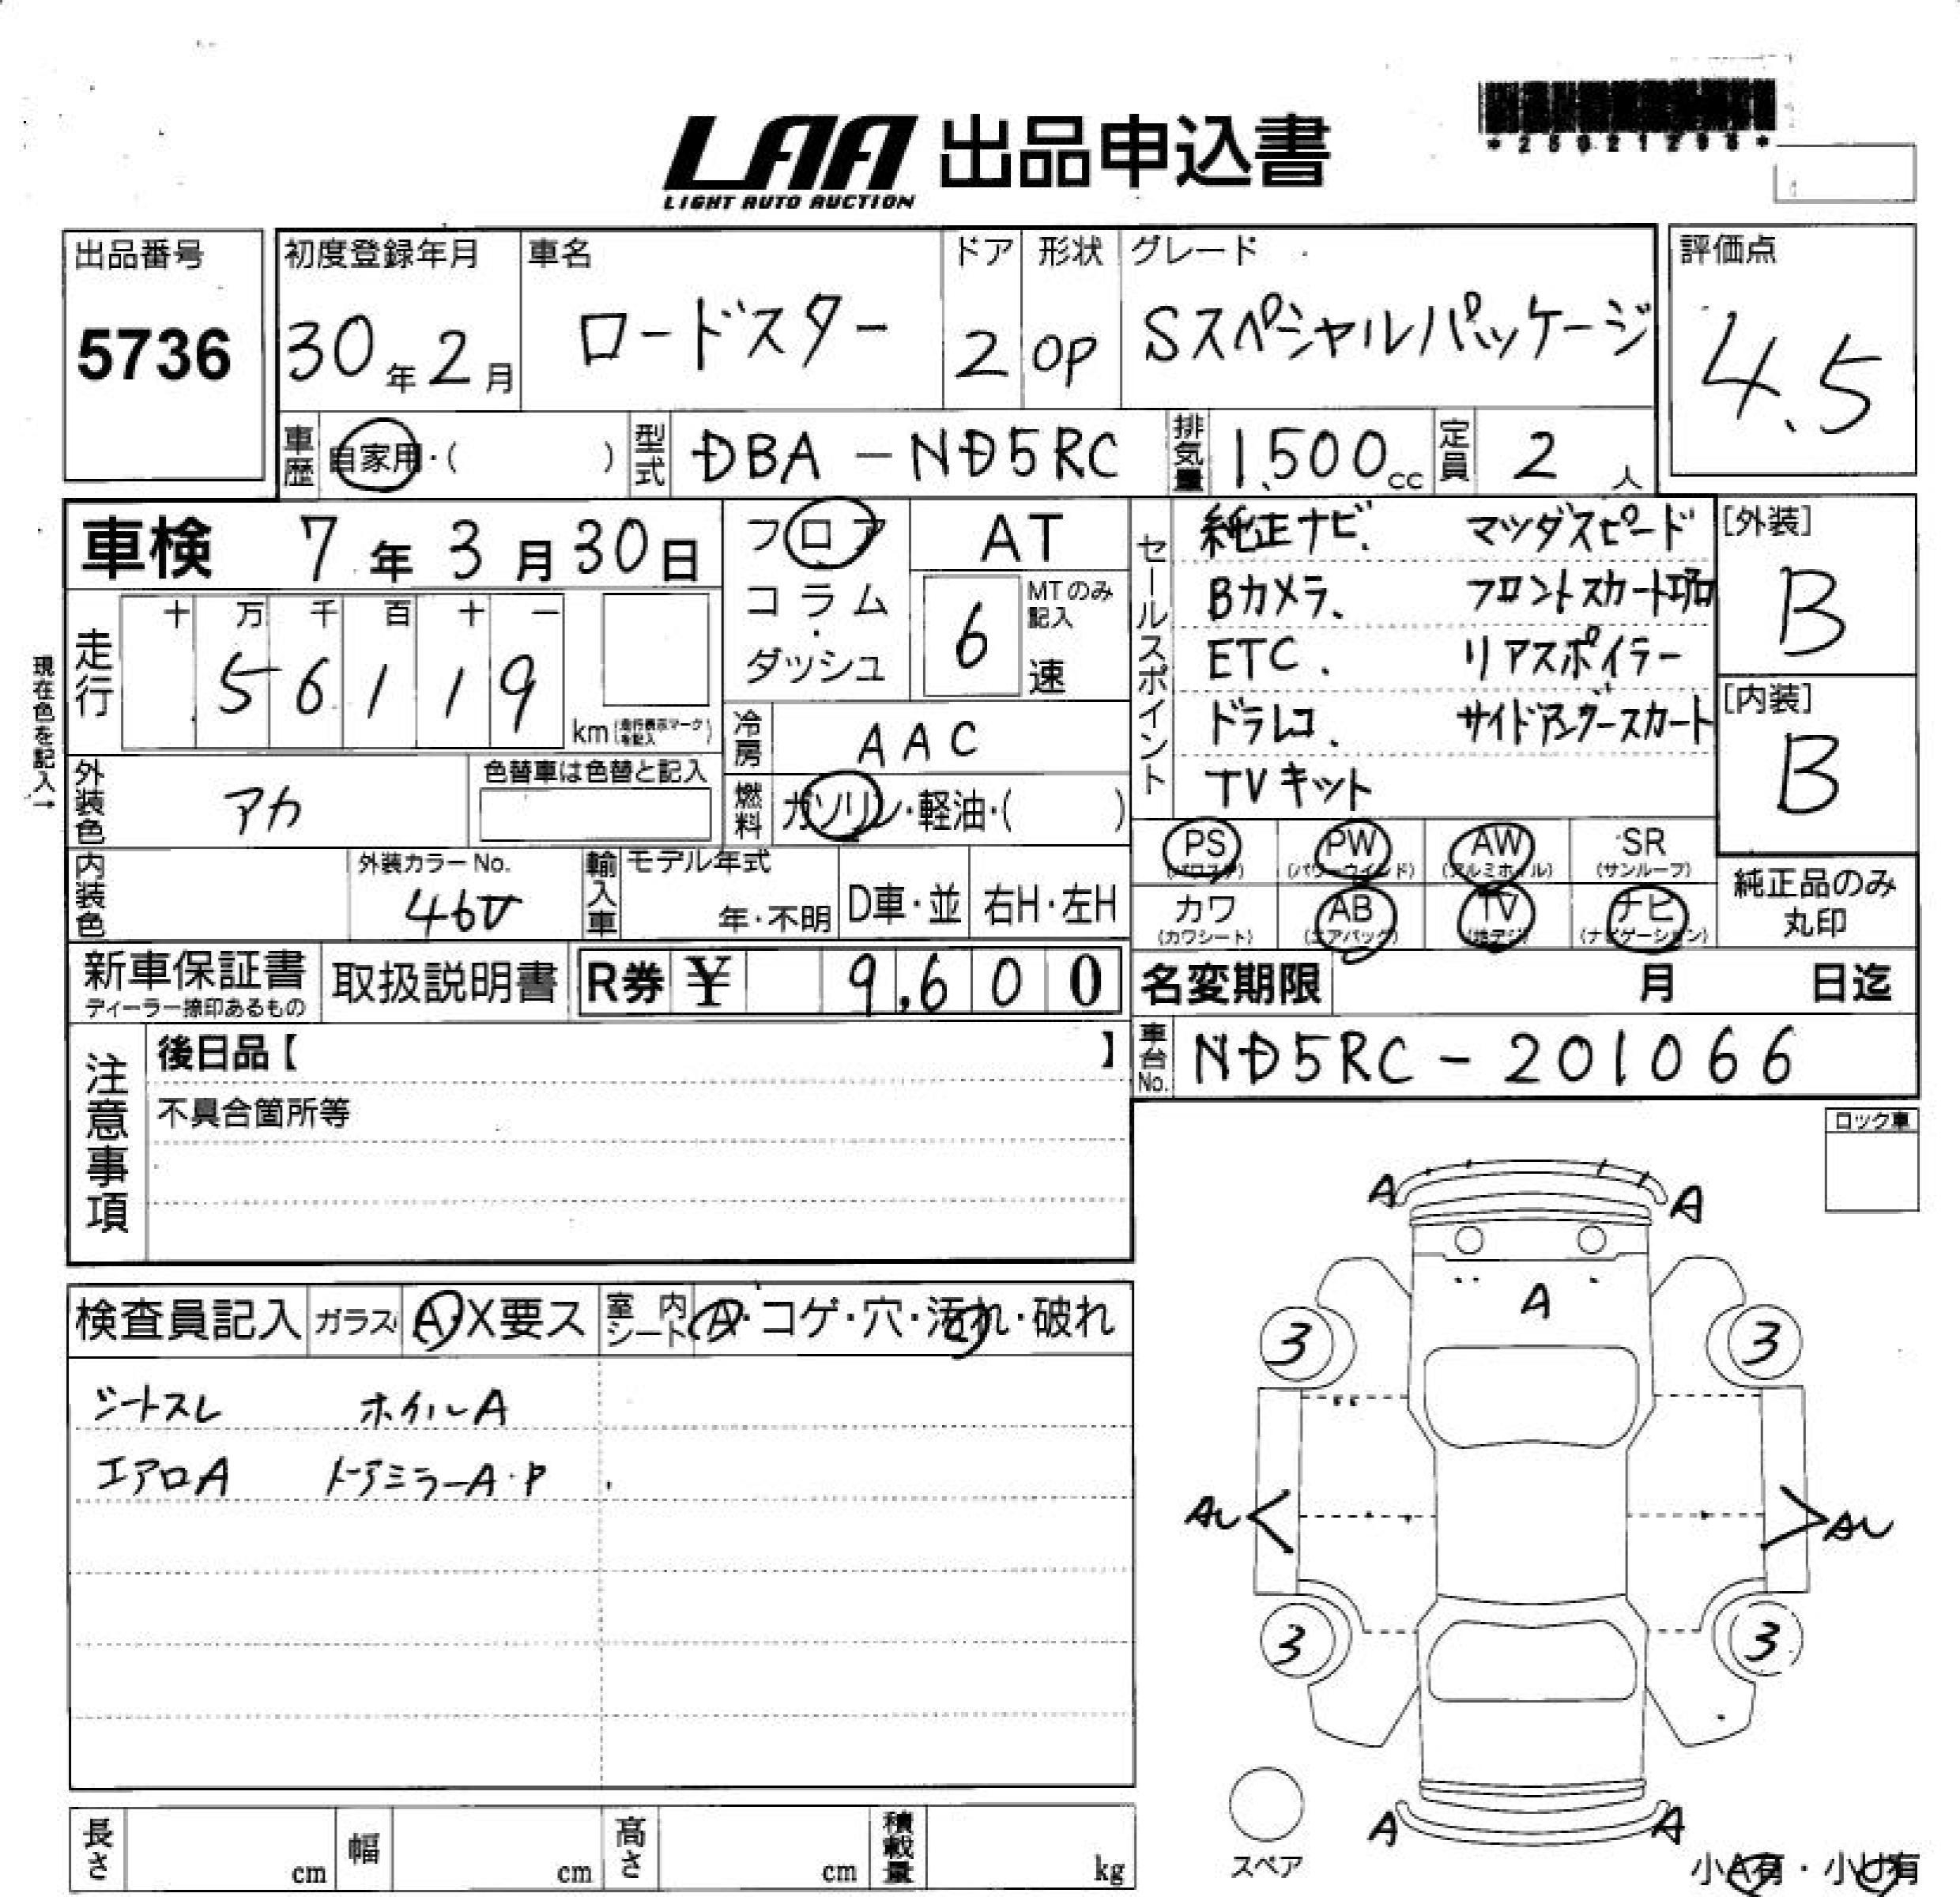 *25021296*
LAA 出品申込書
LIGHT AUTO AUCTION
出品番号 初度登録年月 車名 ドア 形状 グレード 評価点
5736 30年2月 ロードスター 2 OP Sスペシャルパッケージ 4.5
車歴 自家用・( ) 型式 DBA-ND5RC 排気量 1,500cc 定員 2人
車検 7年3月30日 フロア AT
コラム・ダッシュ 6 MTのみ記入 速
セールスポイント
純正ナビ. マツダスピード
Bカメラ、 フロントスカート
ETC. リアスポイラー
ドラレコ. サイドアンダースカート
TVキット
[外装] B
[内装] B
現在色を記入→
走行 十 万 千 百 十 一
5 6 1 1 9 km(走行表示マークを記入)
冷房 AAC
外装色 アカ 色替車は色替と記入 燃料 ガソリン・軽油・( )
PS PW (パワーウインド) AW (アルミホイル) SR (サンルーフ)
カワ (カワシート) AB (エアバッグ) TV (地デジ) ナビ (ナビゲーション)
純正品のみ丸印
内装色 外装カラーNo. 46V 輸入車 モデル年式 年・不明 D車・並 右H・左H
新車保証書 取扱説明書 R券 ¥ 9,600 名変期限 月 日迄
ディーラー捺印あるもの
車台No. ND5RC-201066
注意事項 後日品【 】
不具合箇所等
ロック車
検査員記入 ガラス A・X要ス 室内シート A・コゲ・穴・汚れ・破れ
シートスレ ホイルA
エアロA ドアミラーA・P
A A
A
3 3
AU AU
3 3
A A
スペア
小A有・小U有
長さ cm 幅 cm 高さ cm 積載量 kg